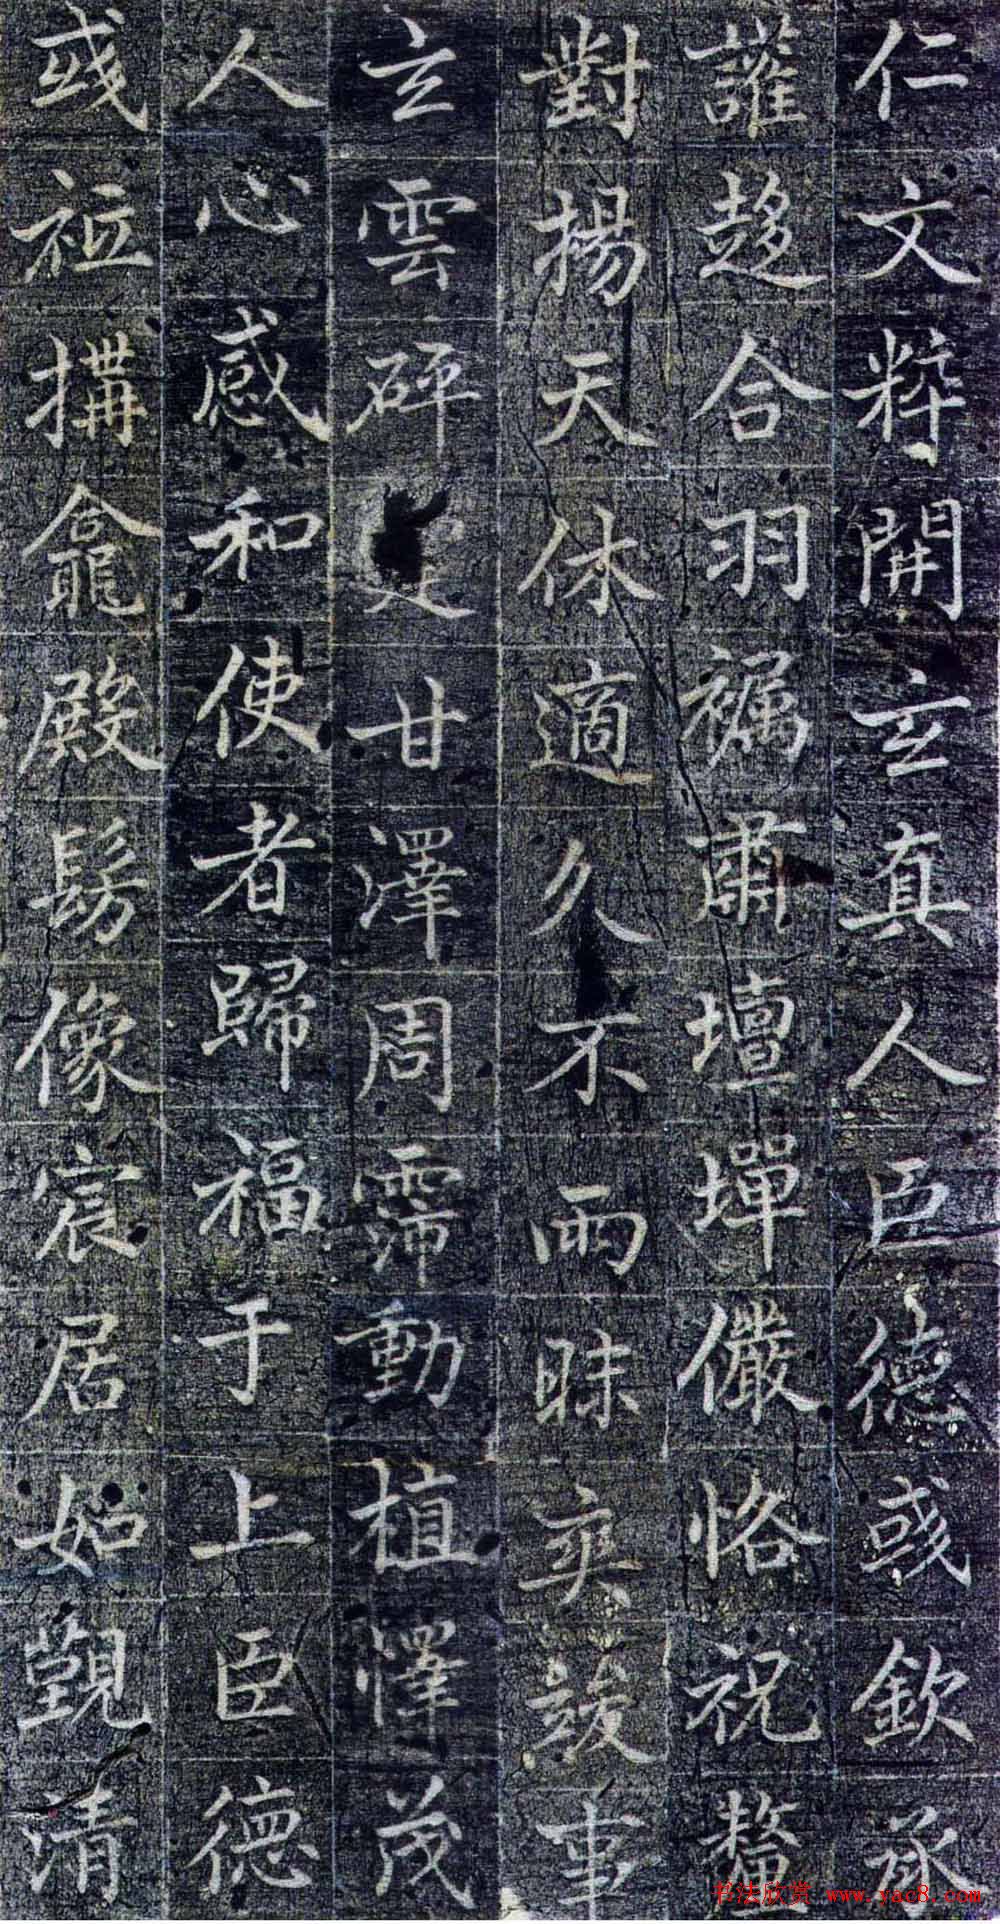 仁文粹開玄真人臣德彧欽承
讙趍合羽肅壇墠儼恪祝釐
對揚天休適久不雨昧爽竣事
玄雲砰甘澤周霈動植懌茂
人心感和使者歸福于上臣德
彧祗搆龕殿髣像宸居如覲清
书法欣赏 www.yac8.com